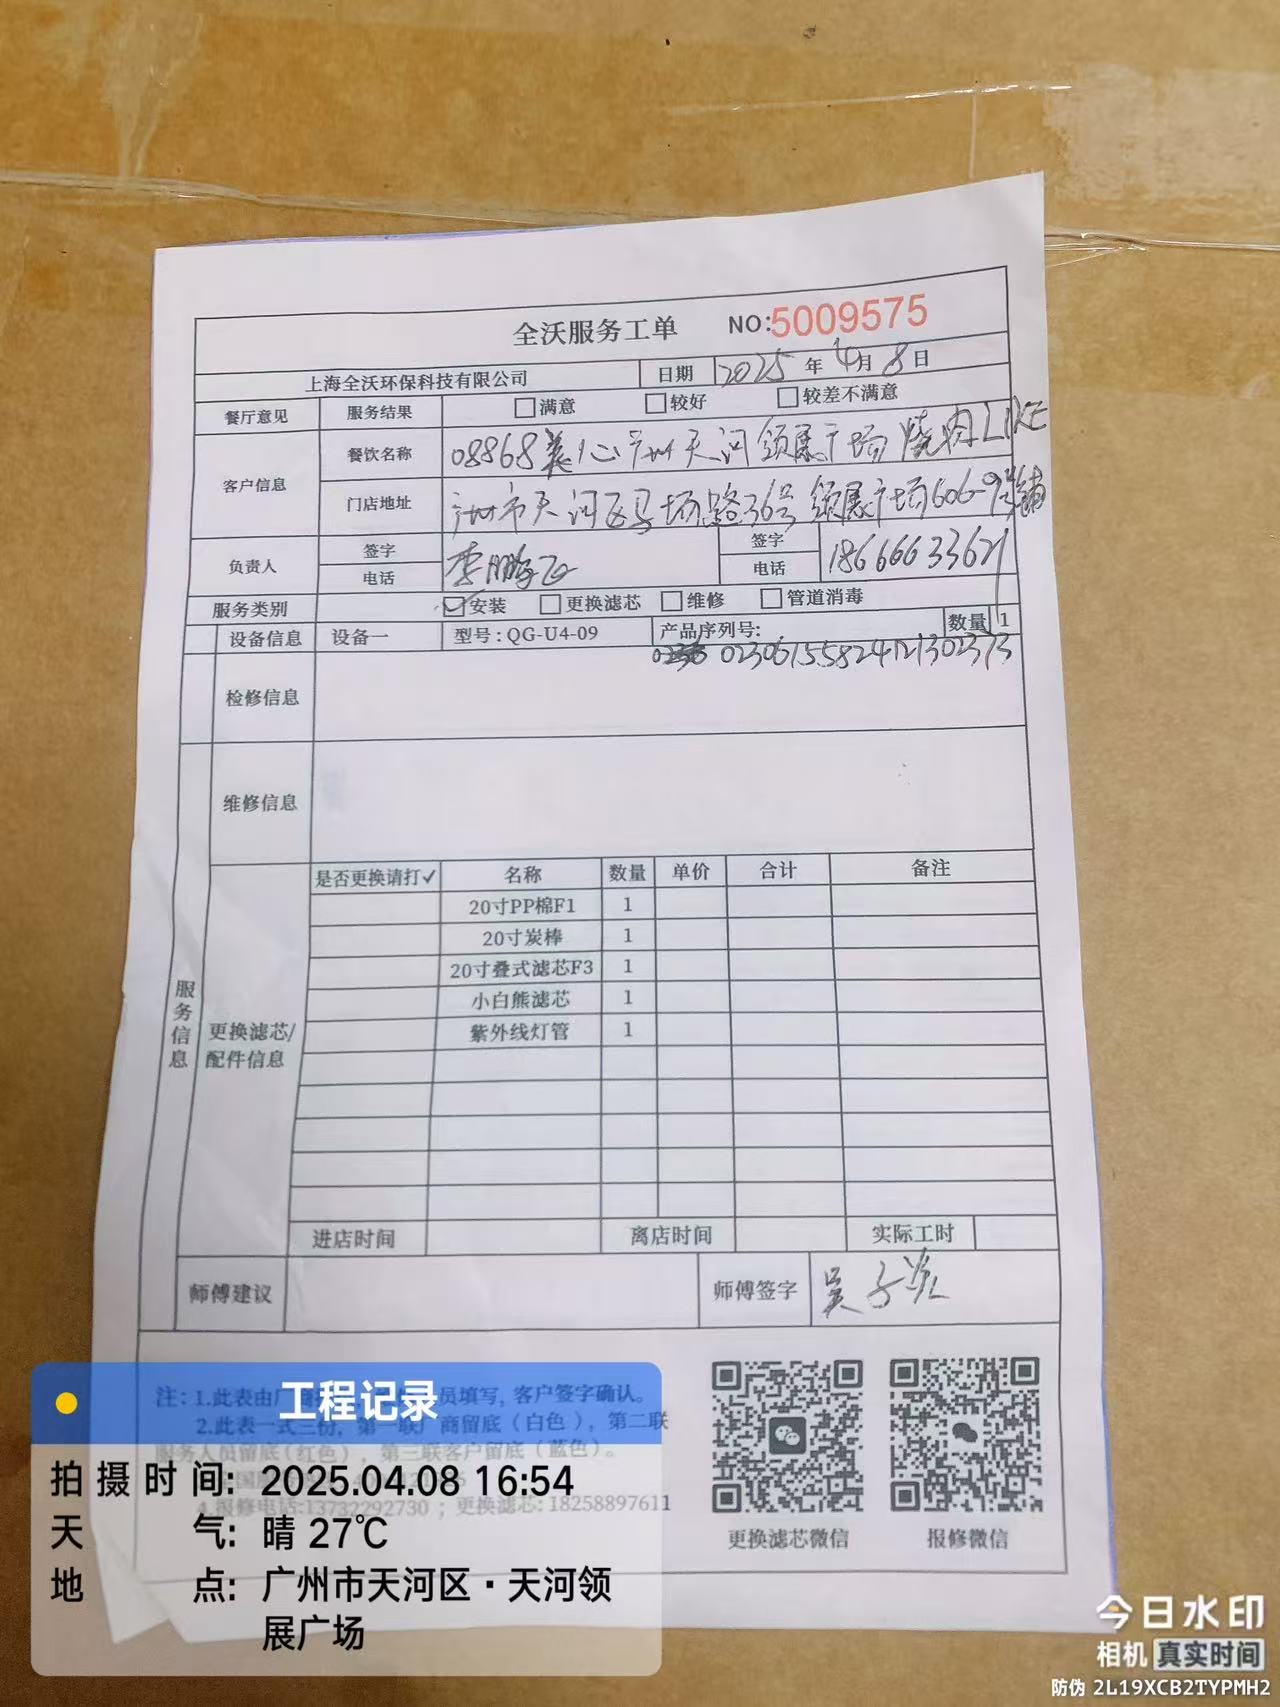 全沃服务工单 NO:5009575
上海全沃环保科技有限公司 日期 2025年4月8日
餐厅意见 服务结果 满意 较好 较差不满意
客户信息 餐饮名称 08868 广州天河领展广场烧肉LIKE
门店地址 广州市天河区马场路36号领展广场606-9号铺
负责人 签字 电话 李鹏飞 签字 电话 18666633621
服务类别 ✓安装 更换滤芯 维修 管道消毒
设备信息 设备一 型号:QG-U4-09 产品序列号: 数量 1
检修信息
维修信息
服务信息
更换滤芯/配件信息
是否更换请打✓ 名称 数量 单价 合计 备注
20寸PP棉F1 1
20寸炭棒 1
20寸叠式滤芯F3 1
小白熊滤芯 1
紫外线灯管 1
进店时间 离店时间 实际工时
师傅建议 师傅签字 吴
注:1.此表由厂 员填写,客户签字确认。
2.此表一式三份,第一联厂商留底(白色),第二联
服务人员留底(红色),第三联客户留底(蓝色)。
4.报修电话:13732292730;更换滤芯:18258897611
更换滤芯微信 报修微信
工程记录
拍摄时间: 2025.04.08 16:54
天气: 晴 27℃
地点: 广州市天河区·天河领
展广场
今日水印
相机 真实时间
防伪 2L19XCB2TYPMH2